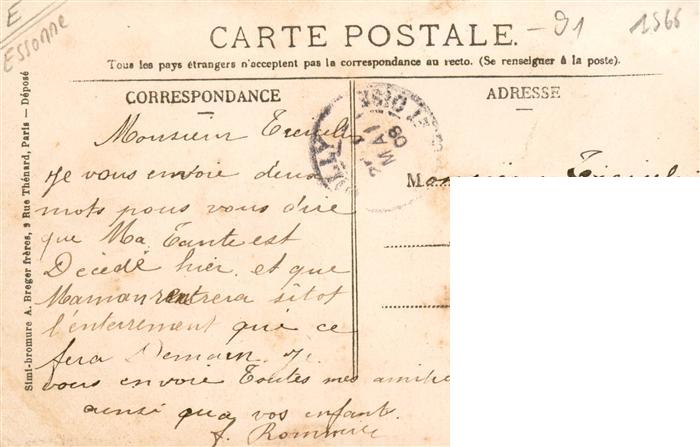 E
Essonne
CARTE POSTALE.
— 91
1566
Tous les pays étrangers n'acceptent pas la correspondance au recto. (Se renseigner à la poste).
CORRESPONDANCE
ADRESSE
Simi-bromure A. Breger frères, 9 Rue Thénard, Paris — Déposé
MAI
08
OISE
Monsieur
Je vous envoie deux
mots pour vous dire
que Ma Tante est
Décédé hier et que
Maman rentrera sitot
l'enterrement qui ce
fera Demain. Je
vous envoie Toutes mes
ainsi qua vos enfants.
Monsieur